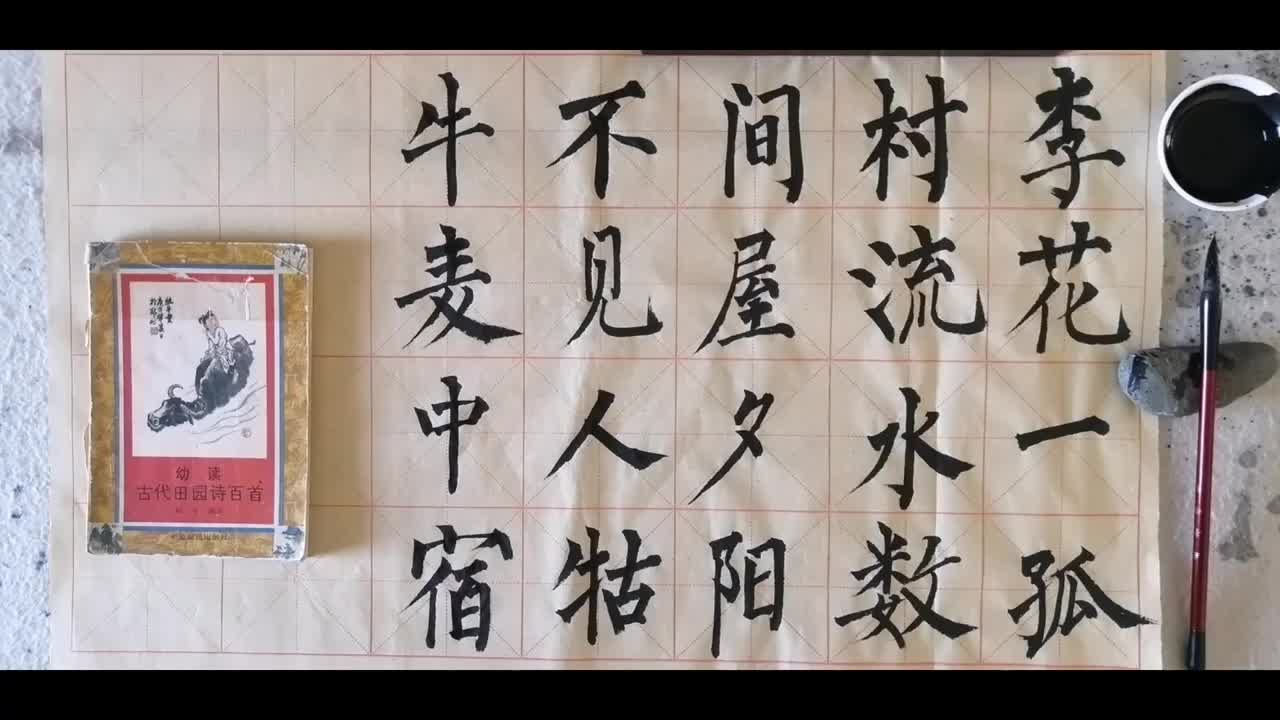 李花一孤
村流水数
间屋夕阳
不见人牯
牛麦中宿
幼读
古代田园诗百首